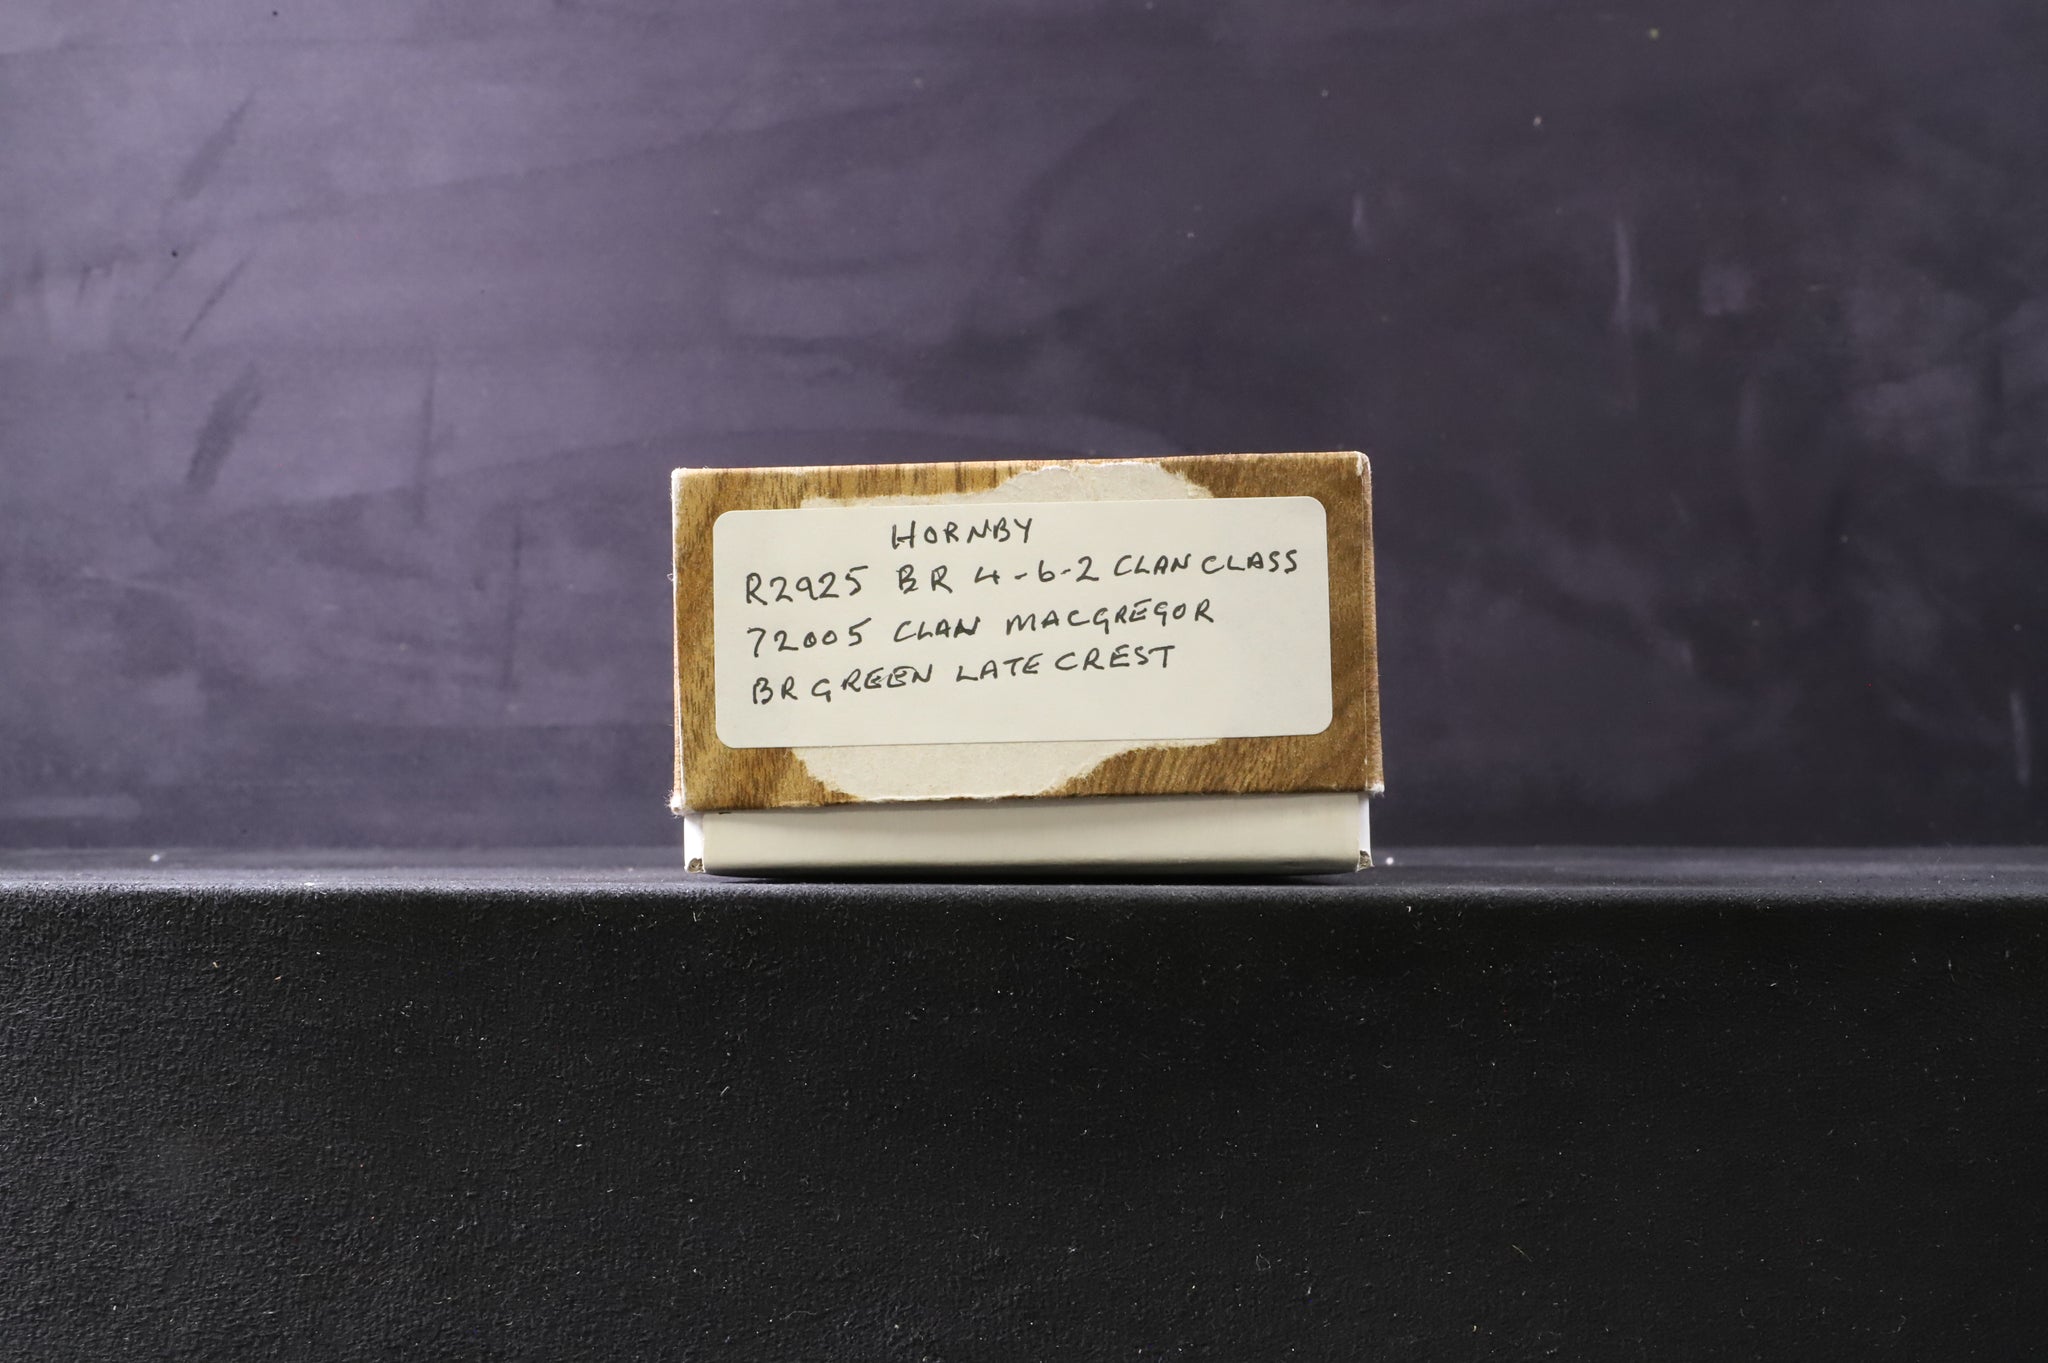 HORNBY
R2925 BR 4-6-2 CLAN CLASS
72005 CLAN MACGREGOR
BR GREEN LATE CREST